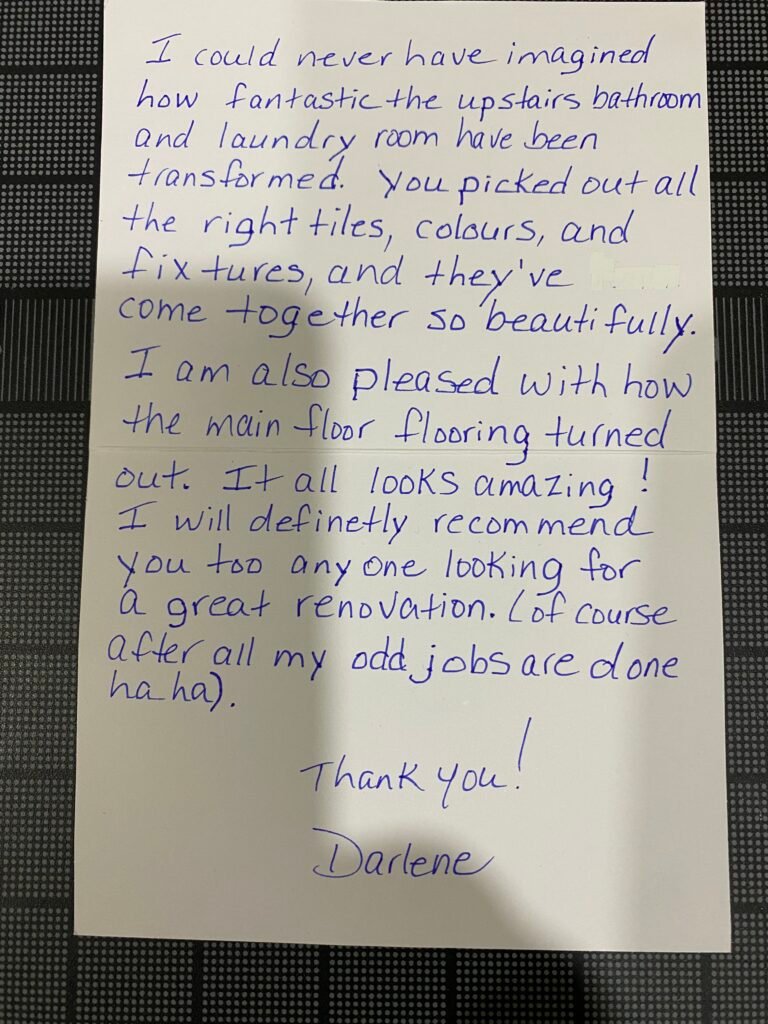 I could never have imagined
how fantastic the upstairs bathroom
and laundry room have been
transformed. You picked out all
the right tiles, colours, and
fixtures, and they've
come together so beautifully.
I am also pleased with how
the main floor flooring turned
out. It all looks amazing!
I will definetly recommend
you too anyone looking for
a great renovation. (of course
after all my odd jobs are done
ha ha).
Thank you!
Darlene